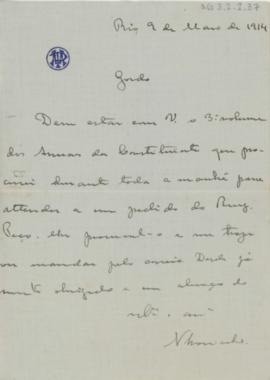 AG 3.2.2.37
Rio, 9 de Maio de 1914
Gordo
Deve estar com V. o 3º volume
dos Annaes da Constituinte que pro-
curei durante toda a manhã para
attender a um pedido do Ruy.
Peço-lhe procural-o e m'o traga
ou mandar pelo correio. Desde já
muito obrigado e um abraço do